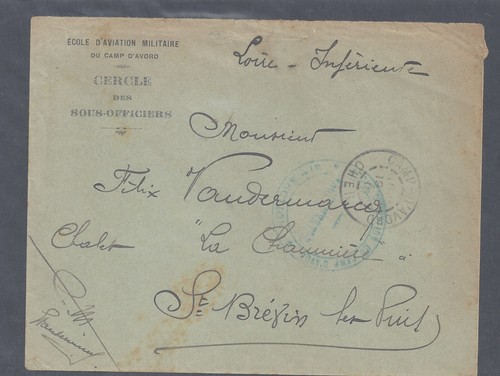 ÉCOLE D'AVIATION MILITAIRE
DU CAMP D'AVORD
CERCLE
DES
SOUS-OFFICIERS
Loire - Inférieure
Monsieur
Félix Vandermarcq
Chalet "La Chaumière" à
St Brévin les Pins
CAMP D'AVORD
CHER